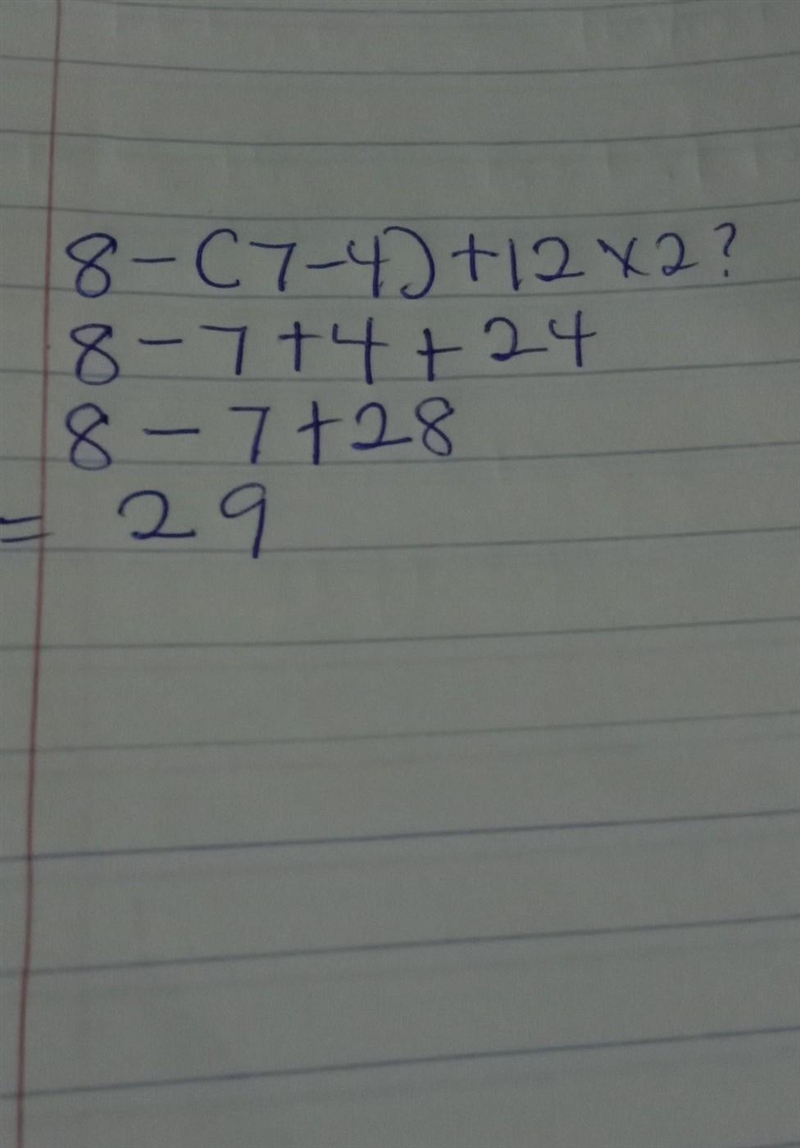 8-(7-4)+12×2?
8-7+4+24
8-7+28
= 29